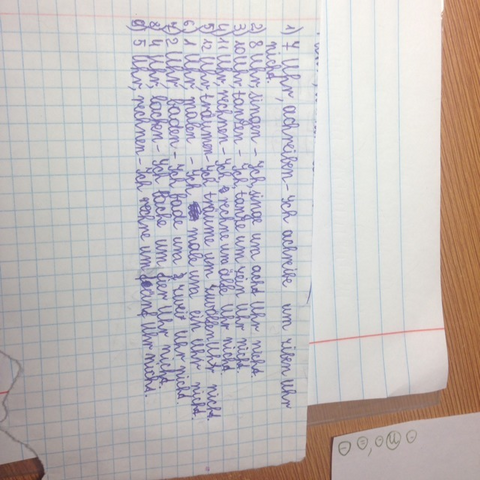 1) 7 Uhr, schreiben - Ych schreibe um siben Uhr
nicht.
2) 8 Uhr, singen - Ych, singe um acht Uhr nicht.
3) 10 Uhr, tanzen - Ych, tanze um zein Uhr nicht.
4) 11 Uhr, rechnen - Ych rechne um elfe Uhr nicht.
5) 12 Uhr, träumen - Ych träume um zwolen Uhr nicht.
6) 1 Uhr, malen - Ych male um ein Uhr nicht.
7) 2 Uhr, baden - Ych bade um zwei Uhr nicht.
8) 4 Uhr, lachen - Ych lache um fier Uhr nicht.
9) 5 Uhr, rechnen - Ych rechne um Uhr nicht.